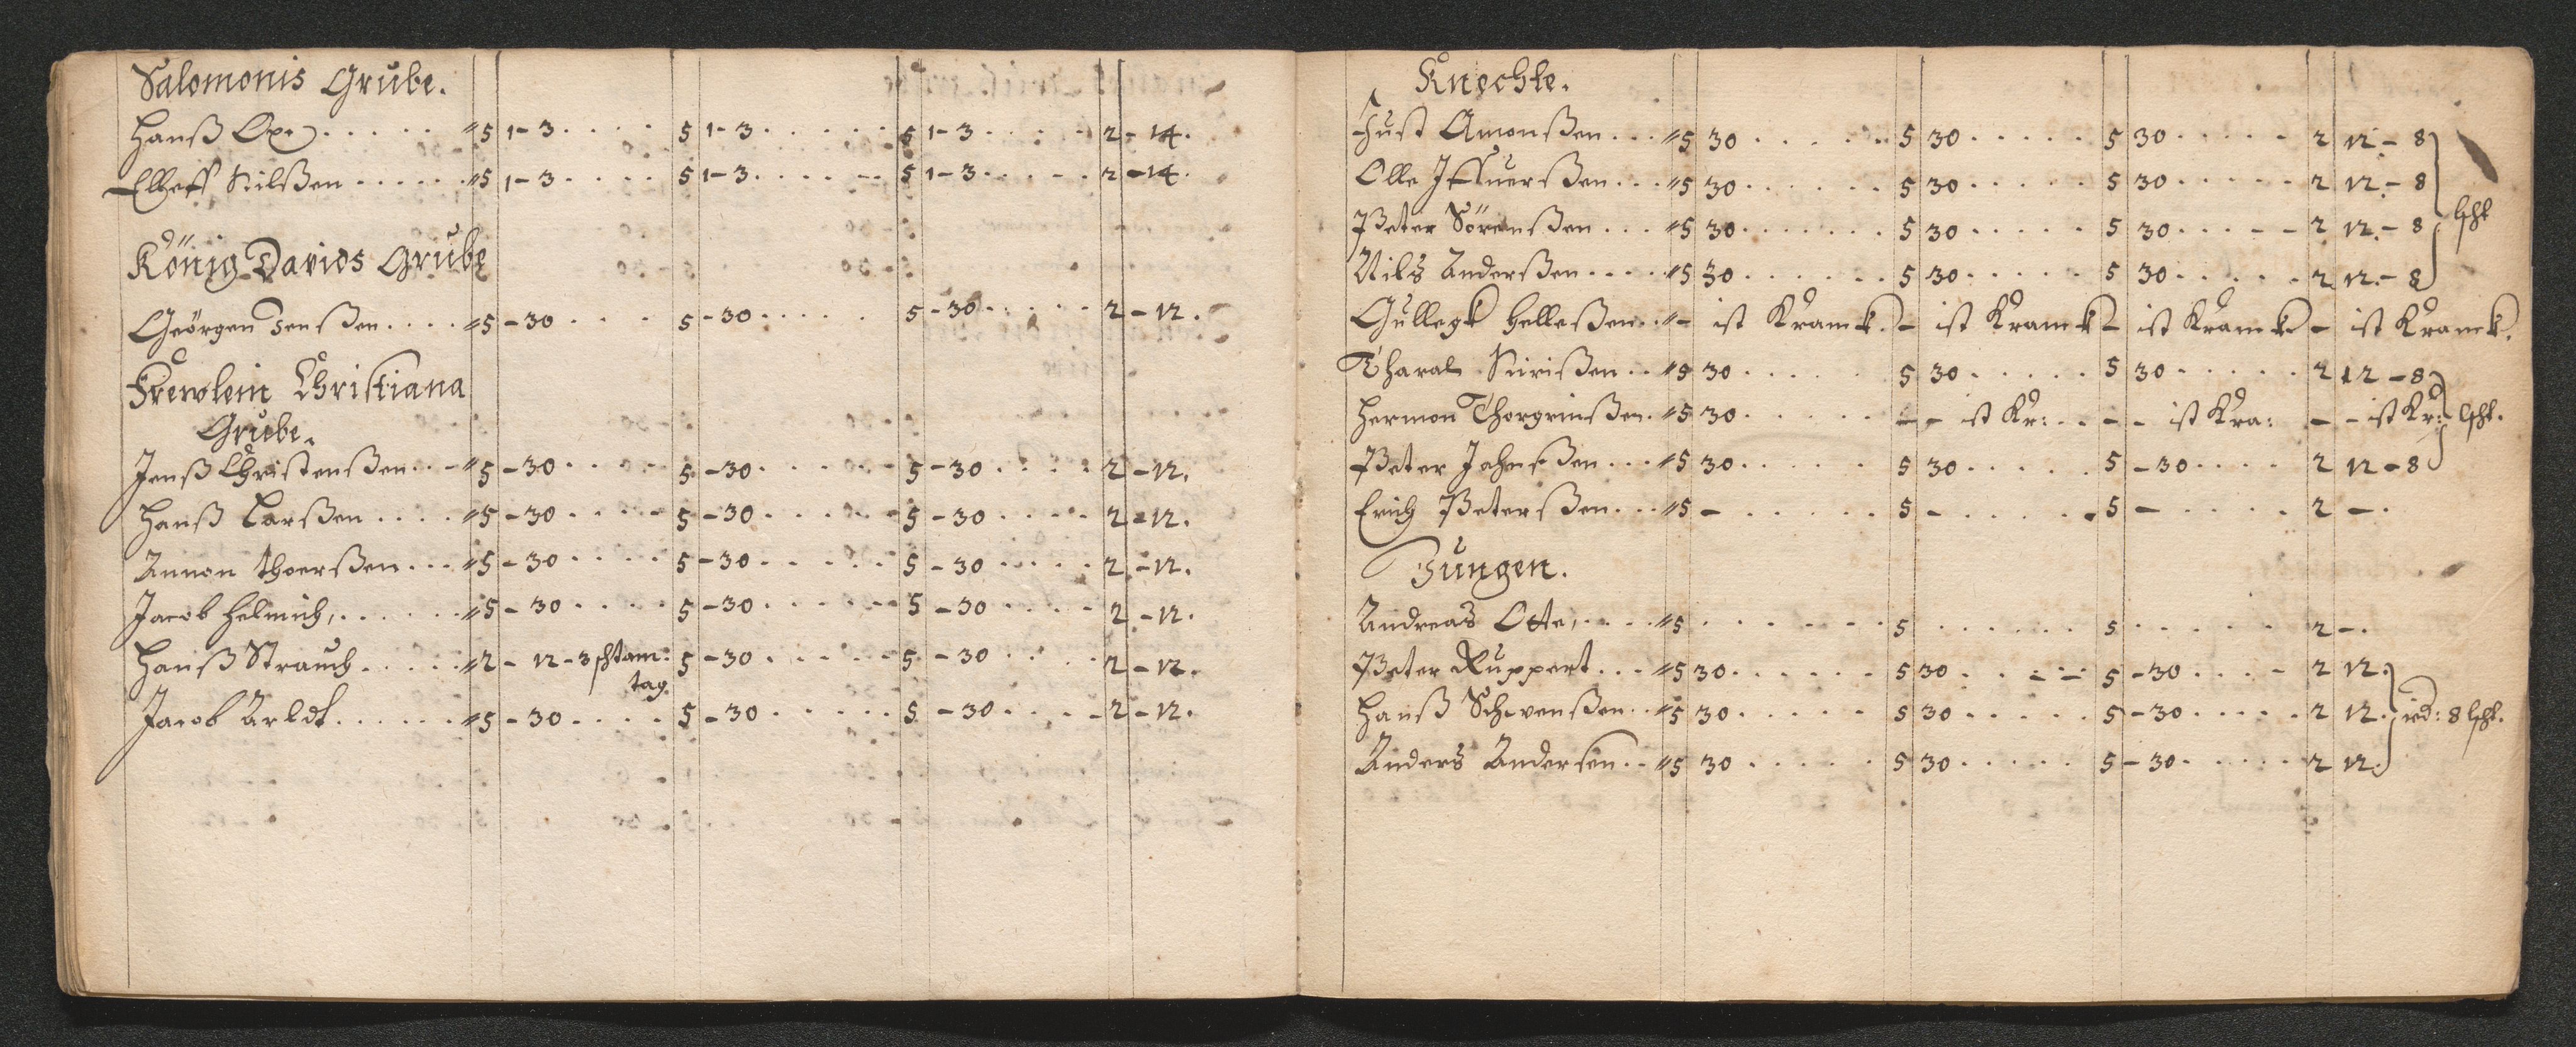 Salomonis Grube.
Hanß Oxe ..... 5 1-3 .... 5 1-3 ...... 5 1-3 .... 2 - 14.
Elleff Nilßen ..... 5 1-3 .... 5 1-3 ...... 5 1-3 .... 2 - 14.
König Davids Grube
Geörgen Jenßen .... 5 - 30 .... 5 - 30 ..... 5 - 30 .... 2 - 12.
Frewlein Christiana
Grube.
Jenß Christenßen .. 5 - 30 .... 5 - 30 ..... 5 - 30 .... 2 - 12.
Hanß Larßen .... 5 - 30 .... 5 - 30 ..... 5 - 30 .... 2 - 12.
Annon Thoerßen ... 5 - 30 .... 5 - 30 ..... 5 - 30 .... 2 - 12.
Jacob Helmich, ..... 5 - 30 .... 5 - 30 ..... 5 - 30 .... 2 - 12.
Hanß Strauch ..... 2 - 12 - 3 5 - 30 ..... 5 - 30 .... 2 - 12.
tag.
Jacob Arldt ...... 5 - 30 .... 5 - 30 ..... 5 - 30 .... 2 - 12.
Knechte.
Just Amonßen ... 5 30 ..... 5 30 ..... 5 30 ..... 2 12 - 8
Olle Iffuerßen ... 5 30 ..... 5 30 ..... 5 30 ..... 2 12 - 8
Peter Sörenßen ... 5 30 ..... 5 30 ..... 5 30 ..... 2 12 - 8 lßl
Nils Anderßen .... 5 30 ..... 5 30 ..... 5 30 ..... 2 12 - 8
Gullegk Helleßen .. - ist Kranck. - ist Kranck - ist Kranck - ist Kranck.
Tharal Siirißen .. 5 30 ..... 5 30 ..... 5 30 ..... 2 12 - 8
Hermon Thorgrinßen. 5 30 ..... - - ist Kr: .. - - ist Kra: - - ist Kr: lßl.
Peter Jahnßen ... 5 30 ..... 5 30 ..... 5 - 30 .... 2 12 - 8
Erich Peterßen ... 5 - ..... 5 - ..... 5 - .... 2 - .
Jungen.
Andreas Otte, .... 5 ...... 5 ...... 5 ..... 2 - .
Peter Ruppert ... 5 30 ...... 5 30 ..... 5 - 30 .... 2 12.
Hanß Schwenßen .. 5 30 ..... 5 30 ..... 5 - 30 .... 2 12. id: 8 lßl.
Anders Andersen .. 5 30 ..... 5 30 ..... 5 - 30 ..... 2 12.